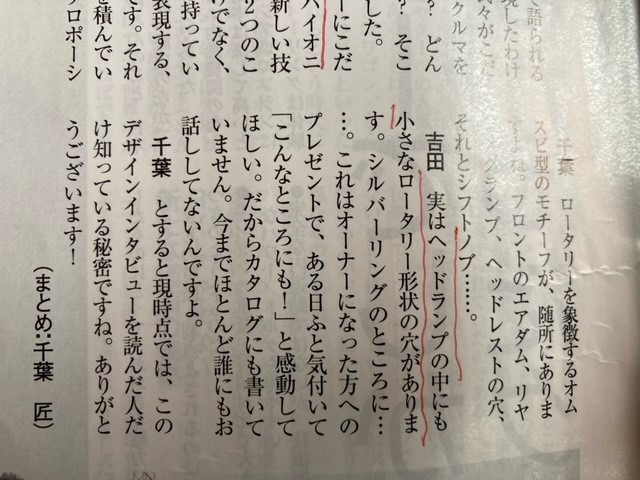 で語られる
現したわけ
々がこだ
クルマを
？ どん
？ そこ
した。
ーにこだ
パイオニ
新しい技
２つのこ
けでなく、
持ってい
表現する、
です。それ
を積んでい
プロポーシ
千葉　ロータリーを象徴するオム
スビ型のモチーフが、随所にありま
すよね。フロントのエアダム、リヤ
グランプ、ヘッドレストの穴、
それとシフトノブ……。
吉田　実はヘッドランプの中にも
小さなロータリー形状の穴がありま
す。シルバーリングのところに…
…。これはオーナーになった方への
プレゼントで、ある日ふと気付いて
「こんなところにも！」と感動して
ほしい。だからカタログにも書いて
いません。今までほとんど誰にもお
話ししてないんですよ。
千葉　とすると現時点では、この
デザインインタビューを読んだ人だ
け知っている秘密ですね。ありがと
うございます！
（まとめ：千葉　匠）